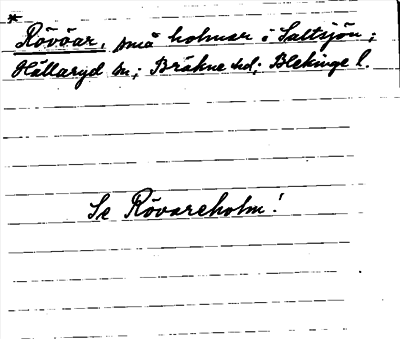 * Rövöar, små holmar i Saltsjön;
Hällaryd sn; Bräkne hd; Blekinge l.
Se Rövareholm!